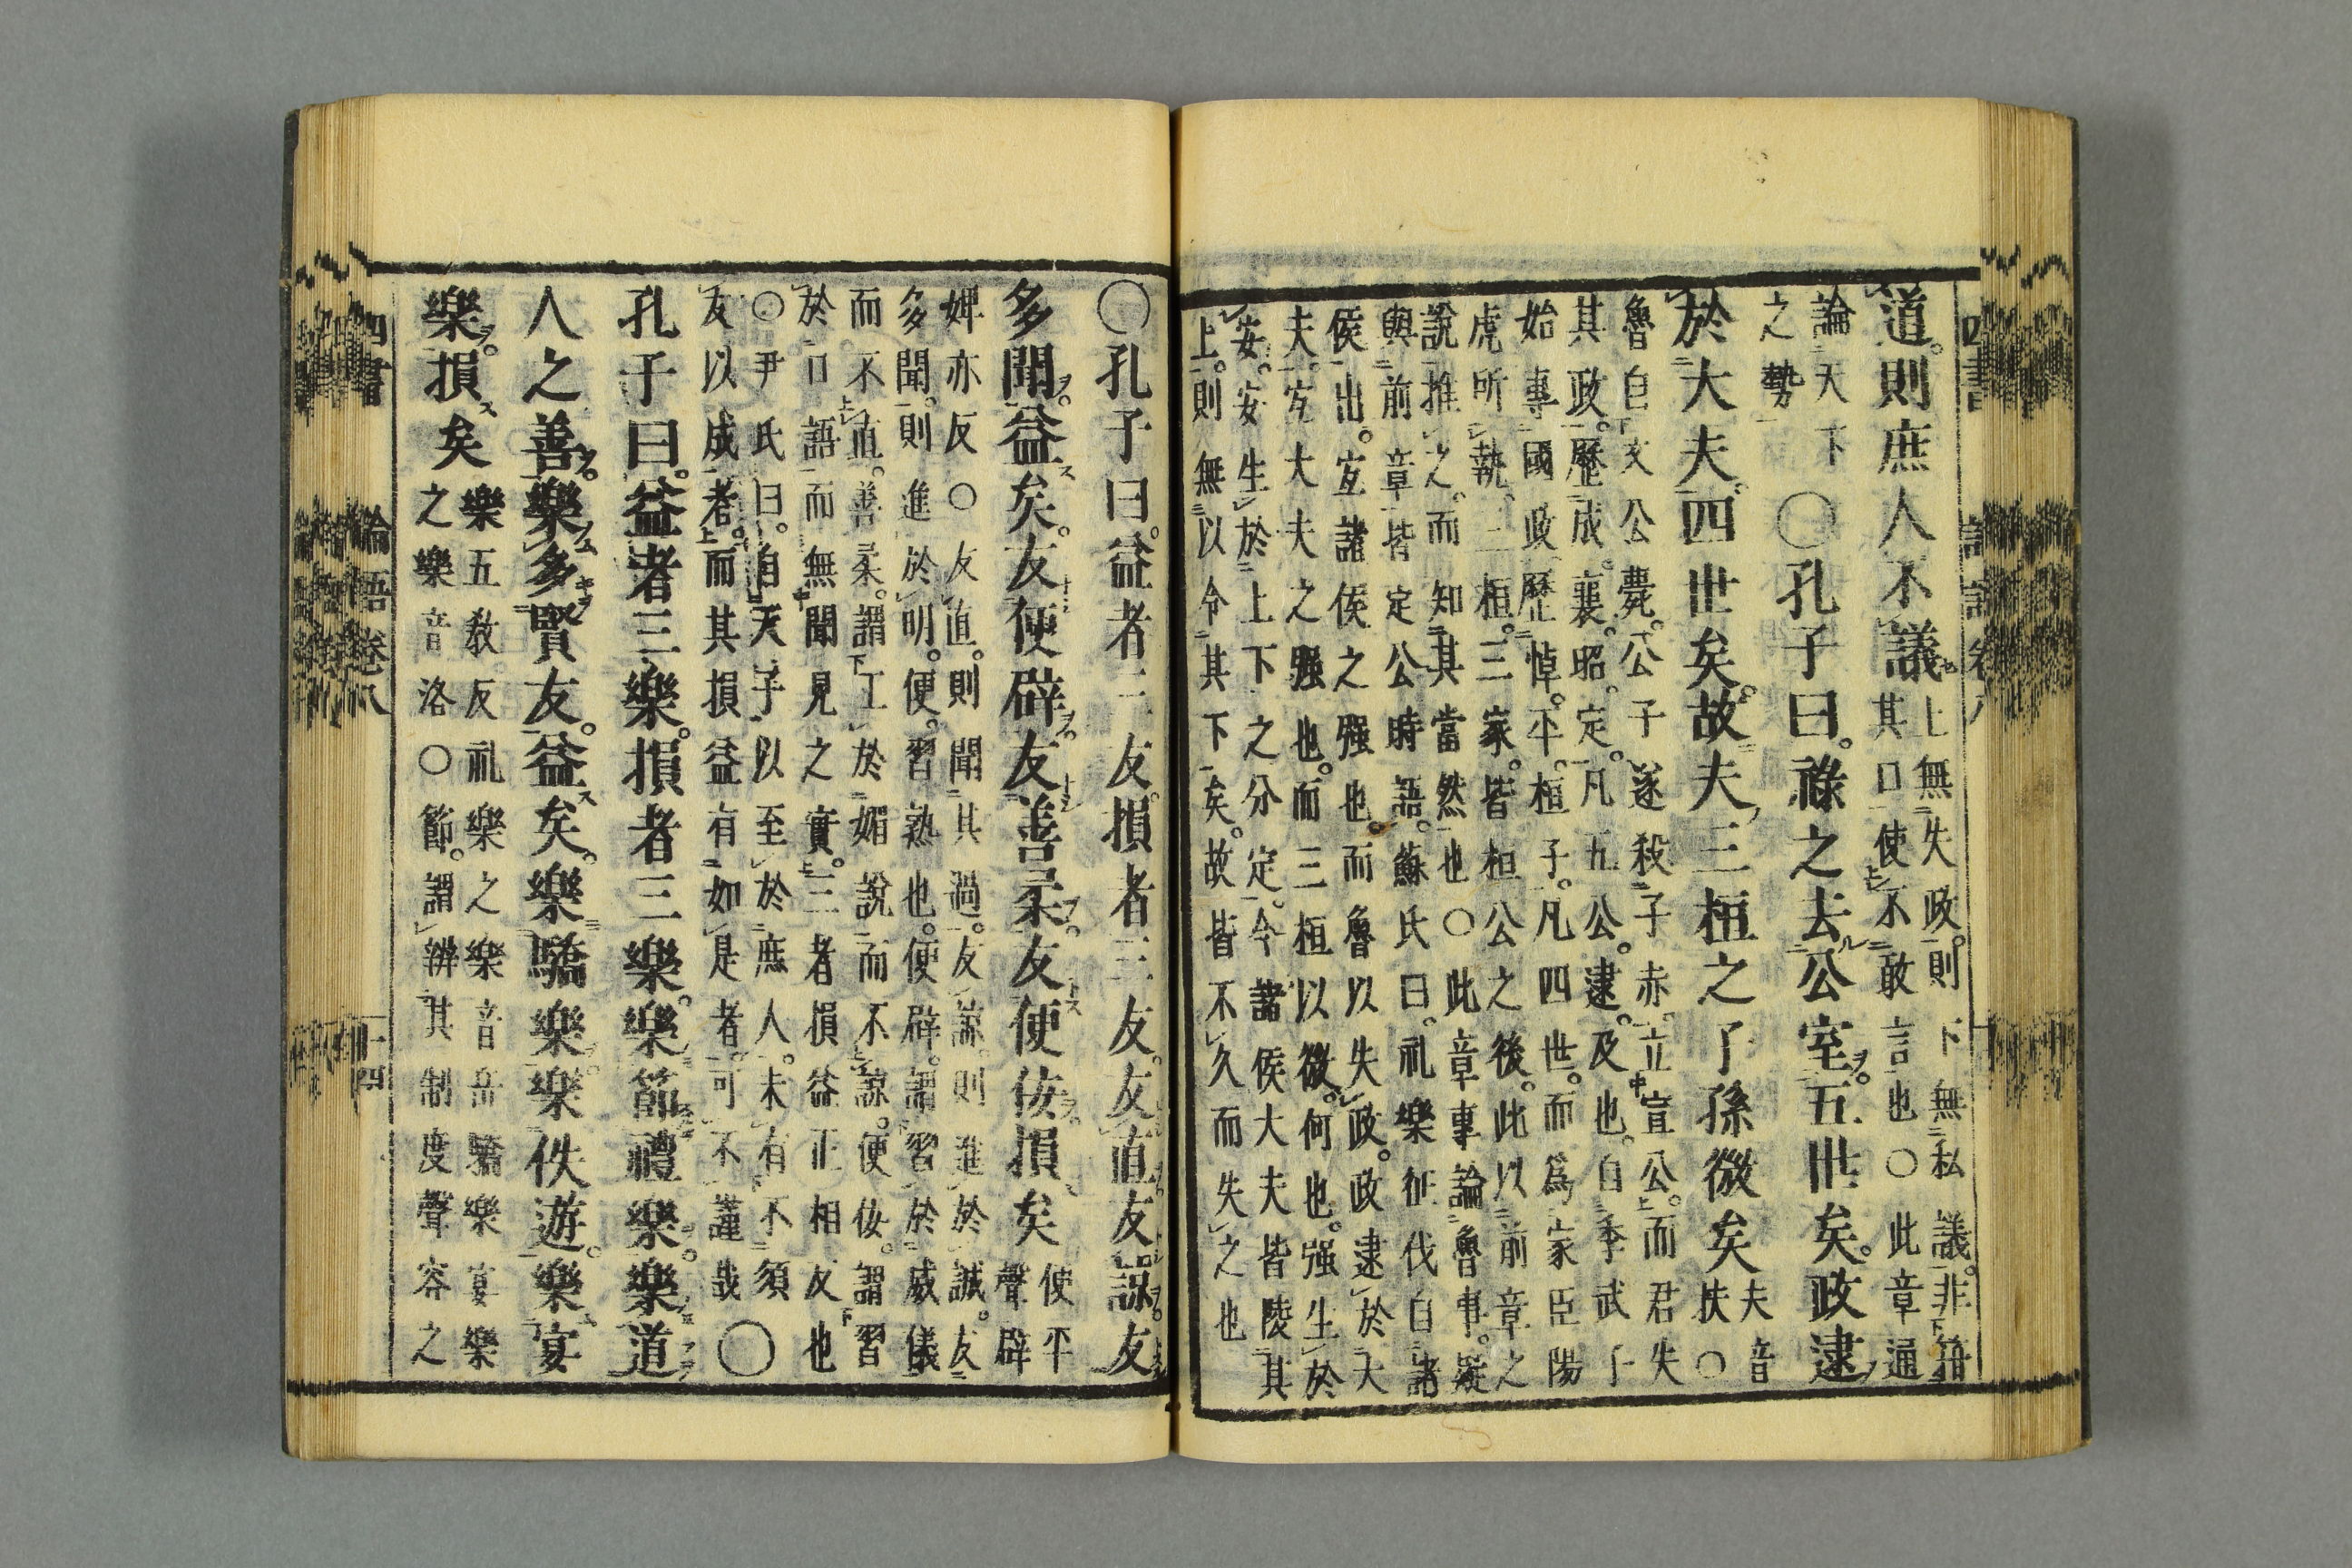 道。則庶人不議
上無失政。則下無私議。非箝
其口使不敢言也○此章通
論天下
之勢
○孔子曰。祿之去公室。五世矣。政逮
於大夫。四世矣。故夫三桓之子孫微矣
夫音
扶○
魯自文公薨。公子遂殺子赤。立宣公。而君失
其政。歷成。襄。昭。定。凡五公。逮。及也。自季武子
始專國政。歷悼。平。桓子。凡四世。而爲家臣陽
虎所執。三桓。三家。皆桓公之後。此以前章之
說推之。而知其當然也○此章專論魯事。疑
與前章皆定公時語。蘇氏曰。礼樂征伐自諸
侯出。宜諸侯之强也。而魯以失政。政逮於大
夫。宜大夫之强也。而三桓以微。何也。强生於
安。安生於上下之分定。今諸侯大夫皆陵其
上。則無以令其下矣。故皆不久而失之也
○孔子曰。益者三友。損者三友。友直。友諒。友
多聞。益矣。友便辟。友善柔。友便佞。損矣
便平
聲辟
婢亦反○友直。則聞其過。友諒。則進於誠。友
多聞。則進於明。便。習熟也。便辟。謂習於威儀
而不直。善柔。謂工於媚說而不諒。便佞。謂習
於口語而無聞見之實。三者損益正相友也
○尹氏曰。自天子以至於庶人。未有不須
友以成者。而其損益有如是者。可不謹哉○
孔子曰。益者三樂。損者三樂。樂節禮樂。樂道
人之善。樂多賢友。益矣。樂驕樂。樂佚遊。樂宴
樂。損矣
樂五教反礼樂之樂音岳驕樂宴樂
之樂音洛○節。謂辨其制度聲容之
四書
論語卷八
十四